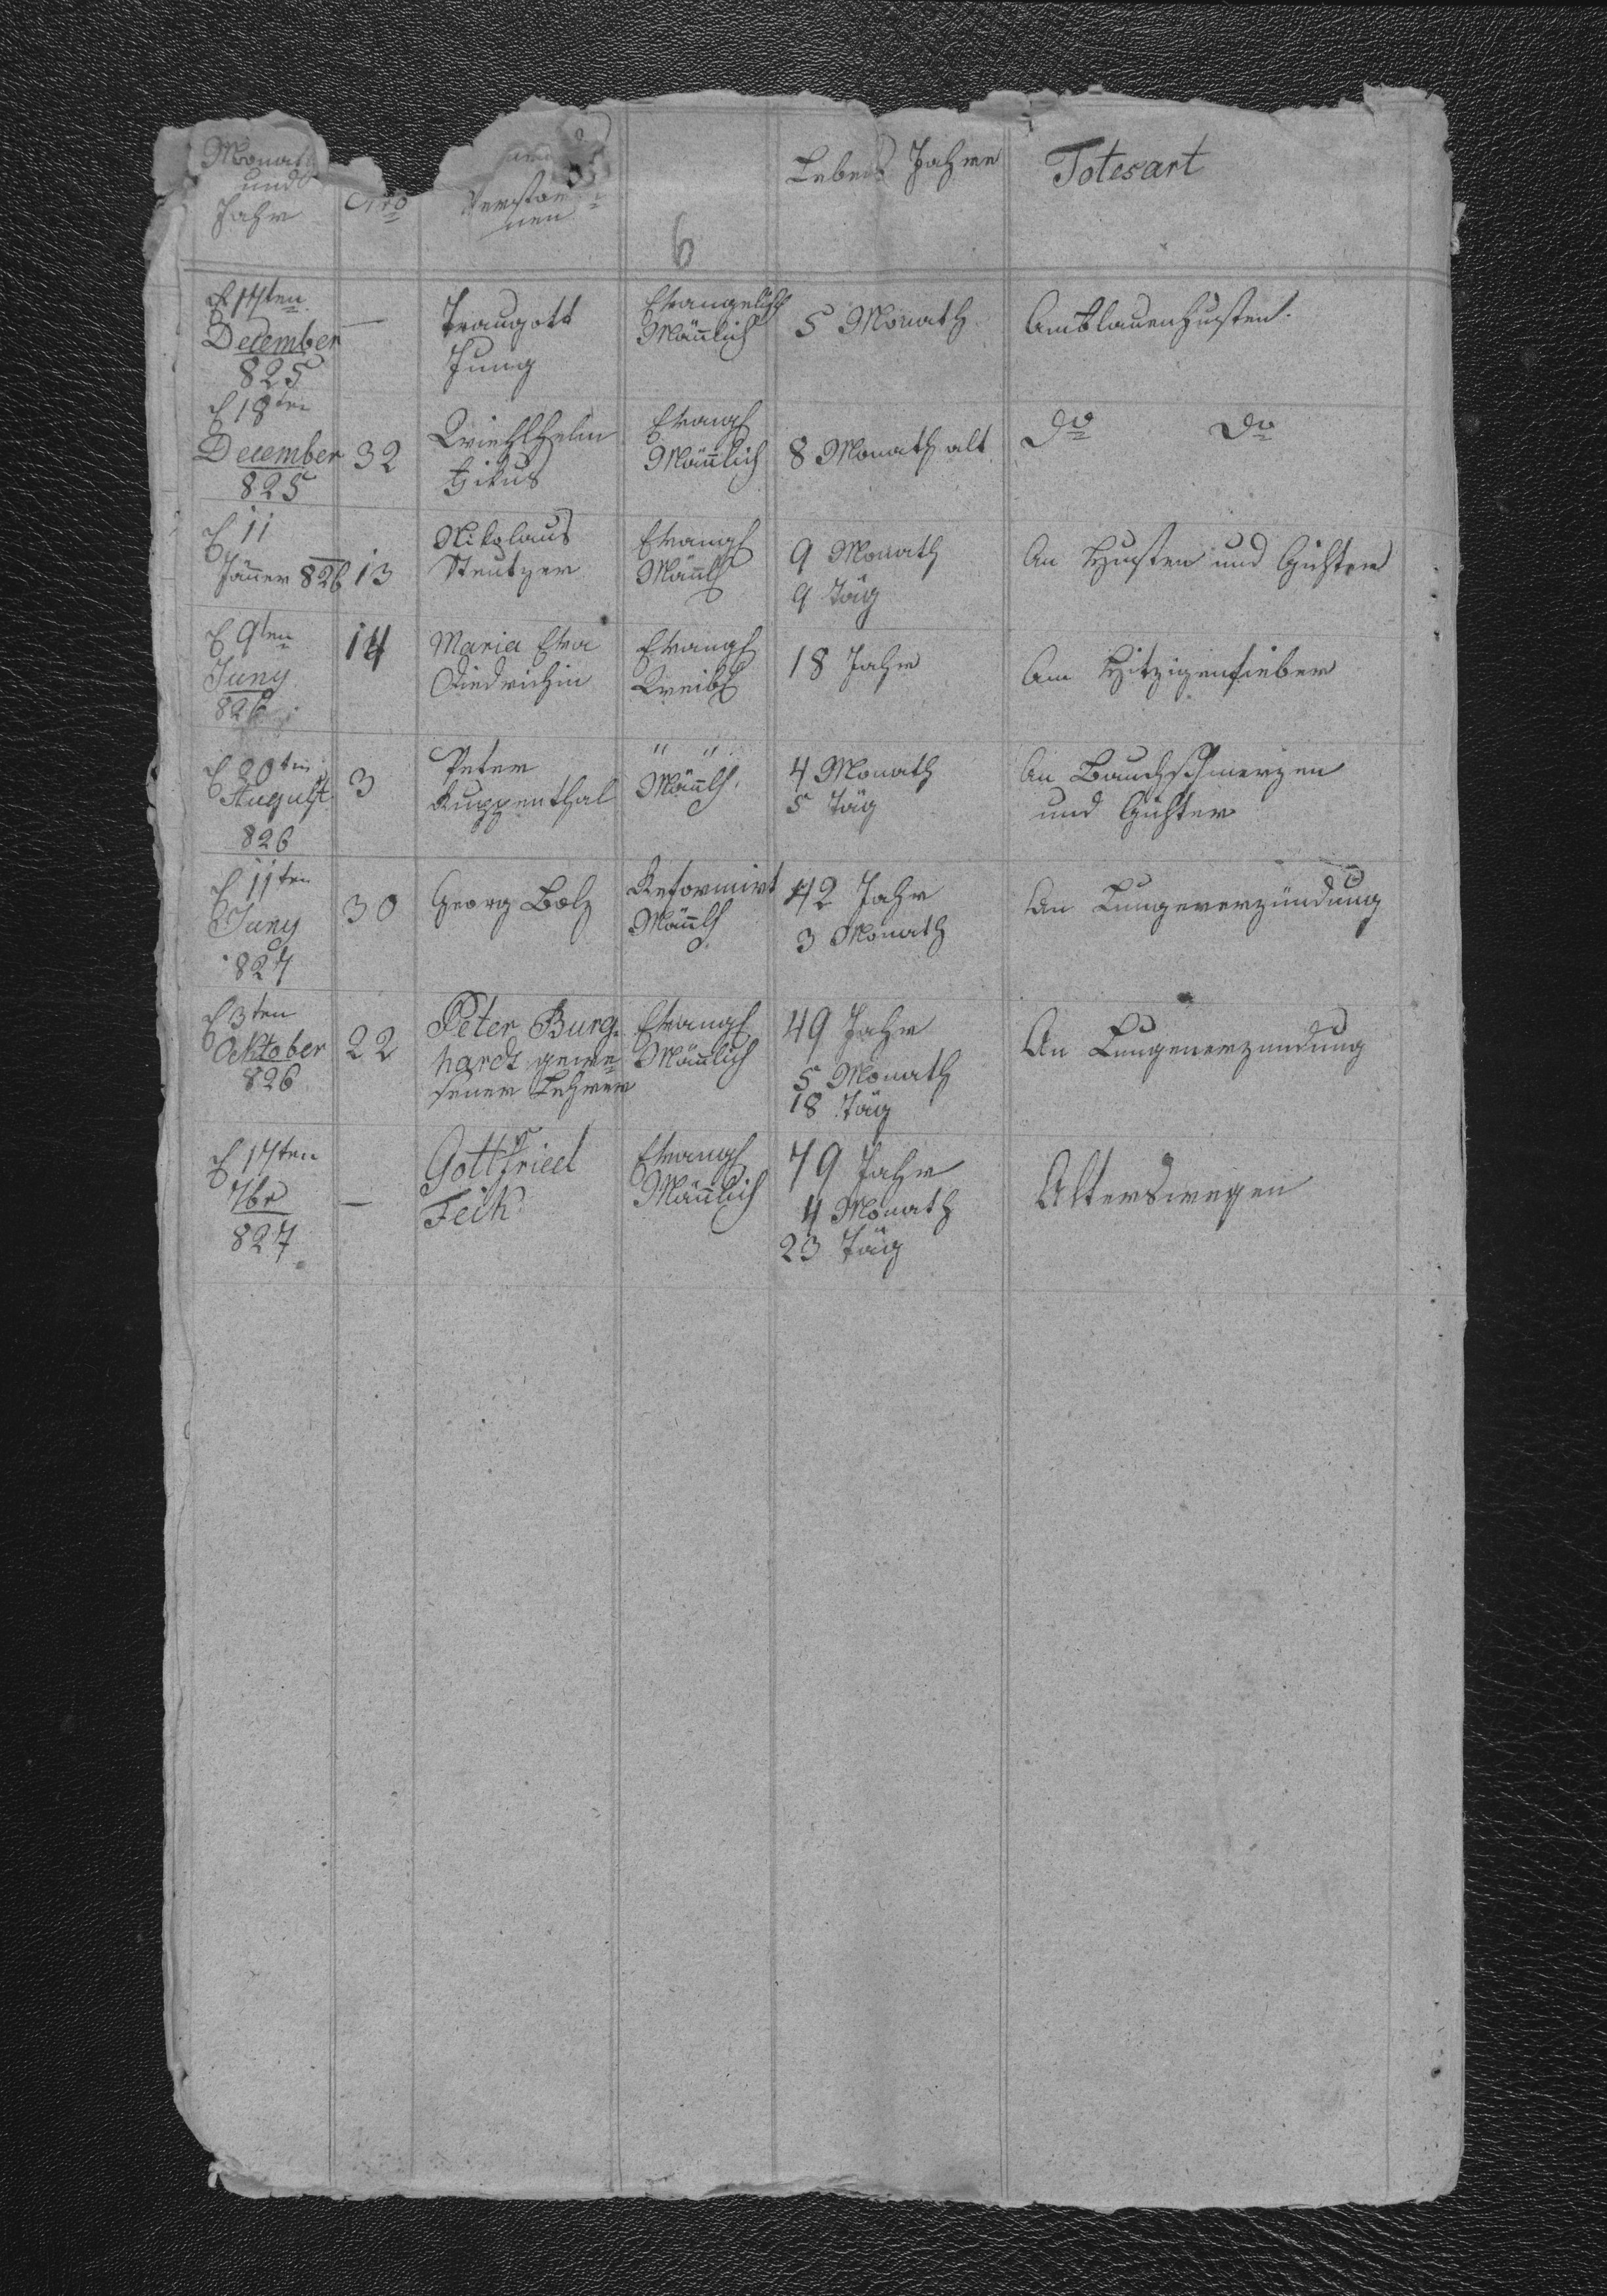 Monat
und
Jahr
Nro
Verstor=
nen
6
Lebens Jahren
Totesart
d 17ten
December
825
—
Traugott
Jung
Evangelisch
Mäñlich
5 Monath
Am blauenhusten.
d 18ten
December
825
32
Wiehlhelm
Evangl
Mäñlich
8 Monath alt
Do Do
d 11
Jäner 826
13
Nikolaus
Steutzer
Evangl
Mäñl
9 Monath
9 Täg
An Husten und Gichter
d 9ten
Juny
826
14
Maria Eva
Diedrichin
Evangl
Weibl
18 Jahr
Am Hitzigenfieber
d 20ten
August
826
3
Peter
Ruppenthal
" "
Mäñl.
4 Monath
5 Täg
An Bauchschmerzen
und Gichter
d 11ten
Juny
827
30
Georg Bolz
Reformirt
Mäñl
42 Jahr
3 Monath
An Lungeverzündung
d 3ten
Ocktober
826
22
Peter Burg-
hardt gewe=
sener Lehrer
Evangl
Mäñlich
49 Jahr
5 Monath
18 Täg
An Lungenverzundung
d 17ten
7br
827
—
Gottfried
Feik
Evangl
Mäñlich
79 Jahr
4 Monath
23 Täg
Alterswegen